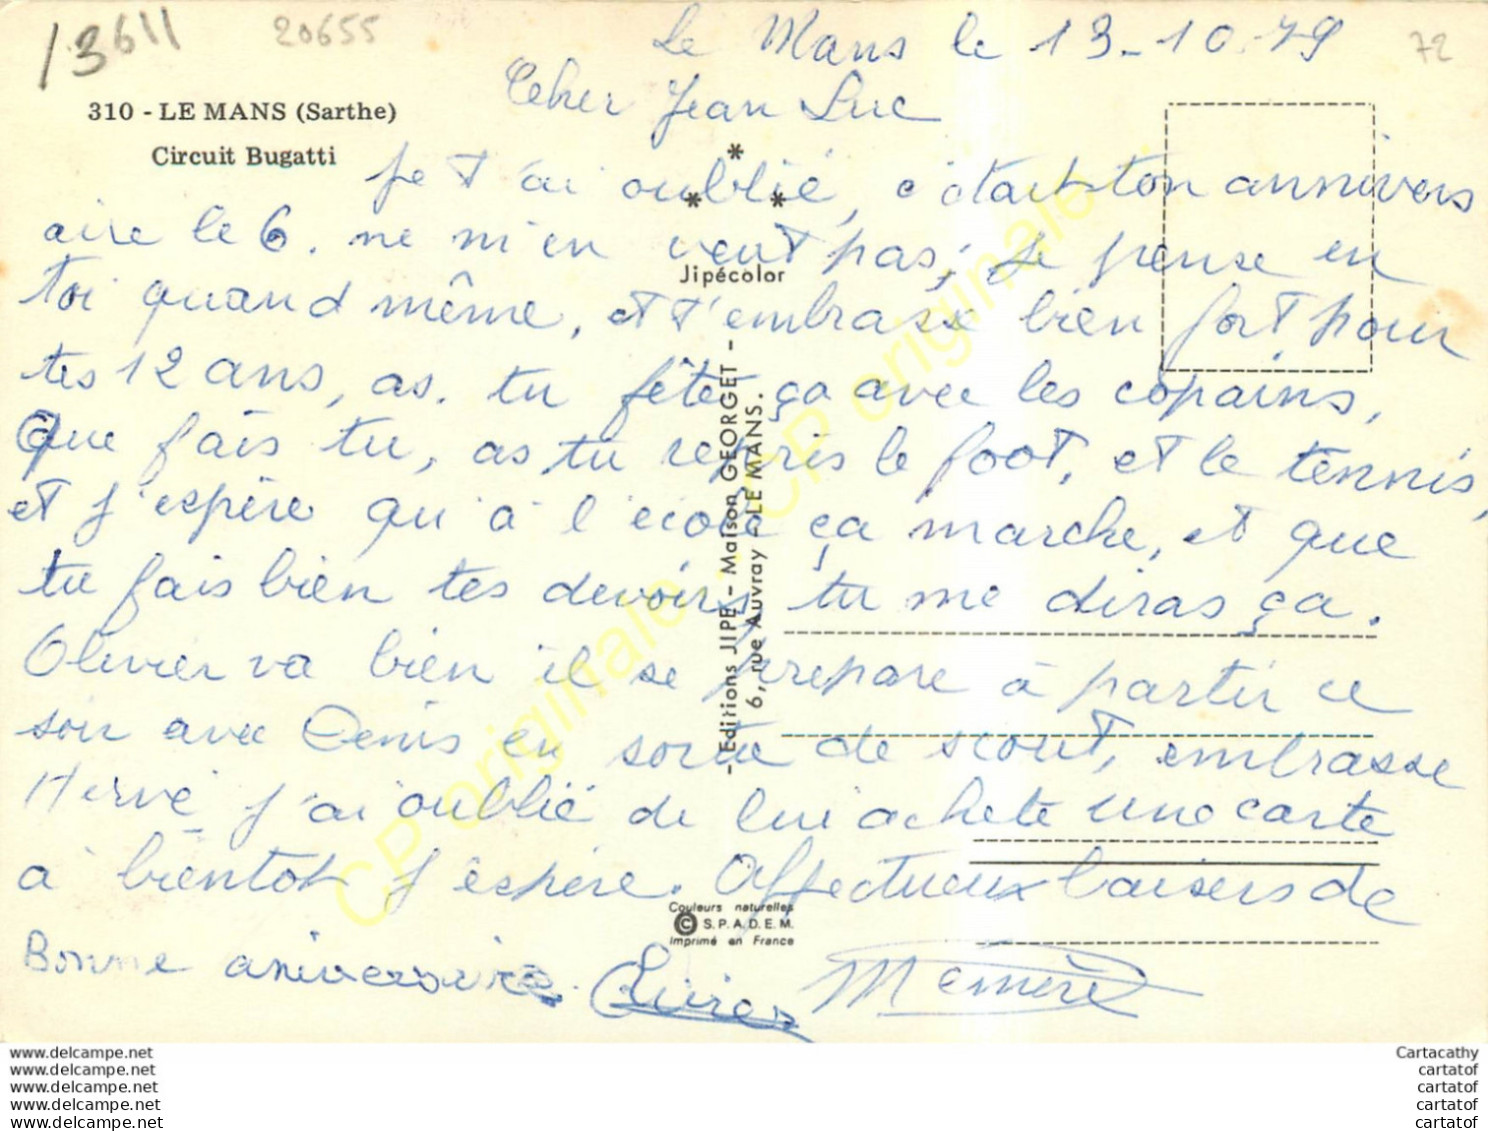 13611
20655
72
Le Mans le 13-10.79
310 - LE MANS (Sarthe)
Circuit Bugatti
Cher Jean Luc
Je t'ai oublié, c'était ton annivers
aire le 6. ne m'en veut pas, je pense en
toi quand même, et t'embrasse bien fort pour
tes 12 ans, as. tu fêter ça avec les copains,
Que fais tu, as tu repris le foot, et le tennis,
et j'espère qu'à l'école ça marche, et que
tu fais bien tes devoirs, tu me diras ça.
Olivier va bien il se prepare à partir ce
soir avec Denis en sortie de scout, embrasse
Hervé j'ai oublié de lui achete une carte
à bientot j'éspère. Affectueux baisers de
Bonne aniversaire. Olivier Mémère
* * *
Jipécolor
- Editions JIPE - Maison GEORGET -
6, rue Auvray - LE MANS.
Couleurs naturelles
© S.P.A.D.E.M.
Imprimé en France
CP originale - CP originale
www.delcampe.net
www.delcampe.net
www.delcampe.net
www.delcampe.net
www.delcampe.net
Cartacathy
cartatof
cartatof
cartatof
cartatof